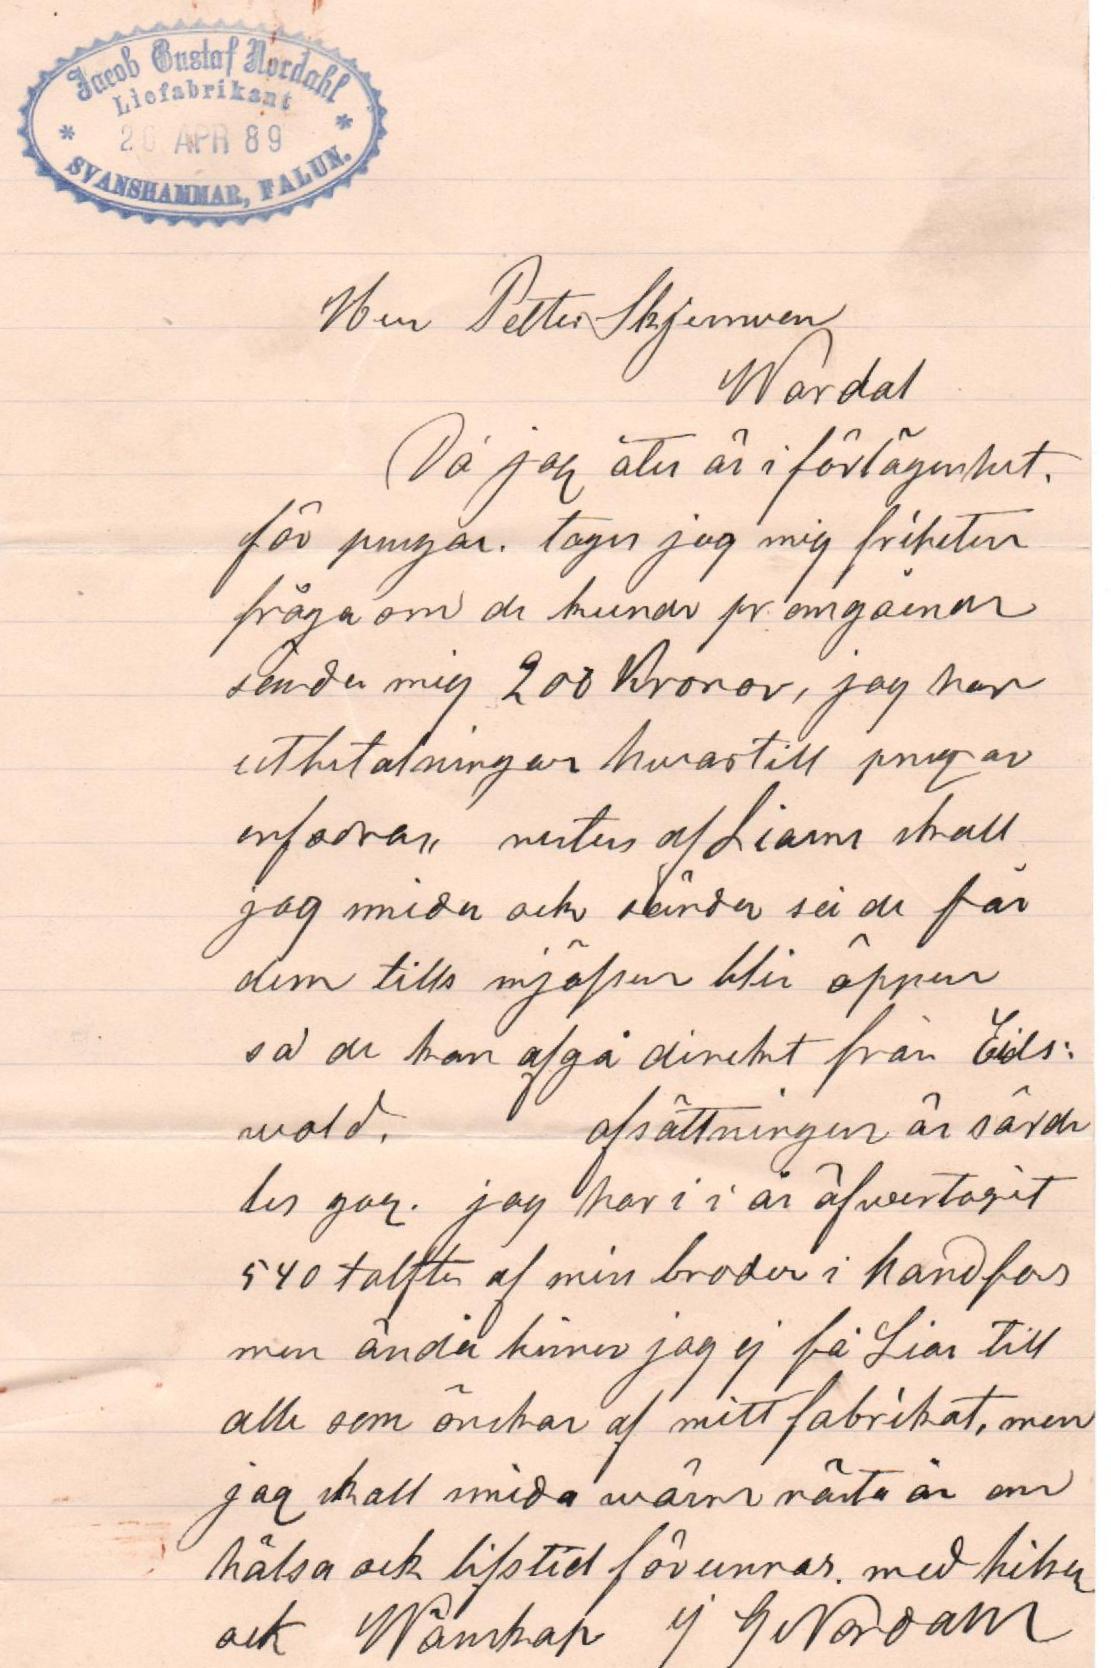 Jacob Gustaf Nordahl
Liefabrikant
26 APR 89
SVANSHAMMAR, FALUN.
Herr Petter Skjerwen
Wardal
Då jag åter är i förlägenhet.
för pengar. tager jag mig friheten
fråga om de kunde pr omgående
sända mig 200 Kronor, jag har
utbetalningar hwartill pengar
erfodras,, resten af Liarne skall
jag smida och sända så de får
dem tills mjösen blir öppen
så de kan afgå direkt från Eids:
wold. afsättningen är särde
les god. jag har i i år öfwertagit
540 tolfter af min broder i handfors
men ändå hinner jag ej få Liar till
alla som önskar af mitt fabrikat, men
jag skall smida nästa år om
hälsa ock lifstid förunnas. med helsn
ock Wänskap J G Nordahl